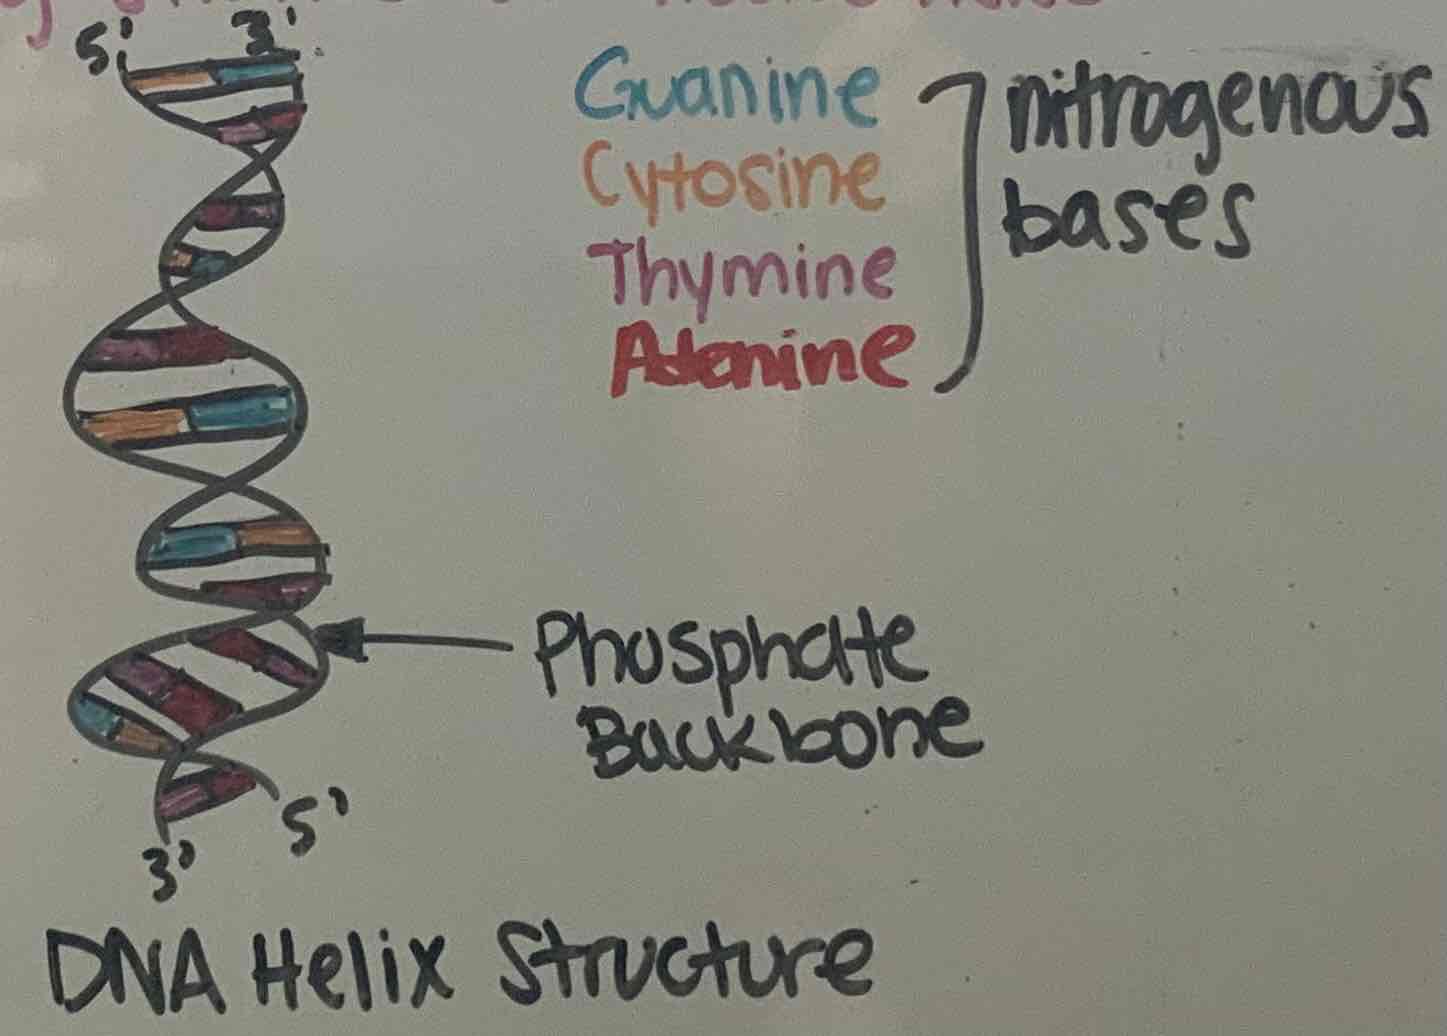 5' 3'
Guanine
Cytosine
Thymine
Adenine
nitrogenous
bases
Phosphate
Backbone
5'
3'
DNA Helix Structure